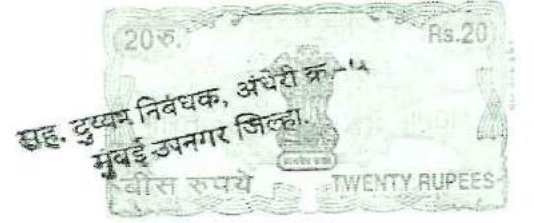 20रु. Rs.20
सह. दुय्यम निबंधक, अंधेरी क्र.-५
मुंबई उपनगर जिल्हा.
सत्यमेव जयते
बीस रुपये TWENTY RUPEES